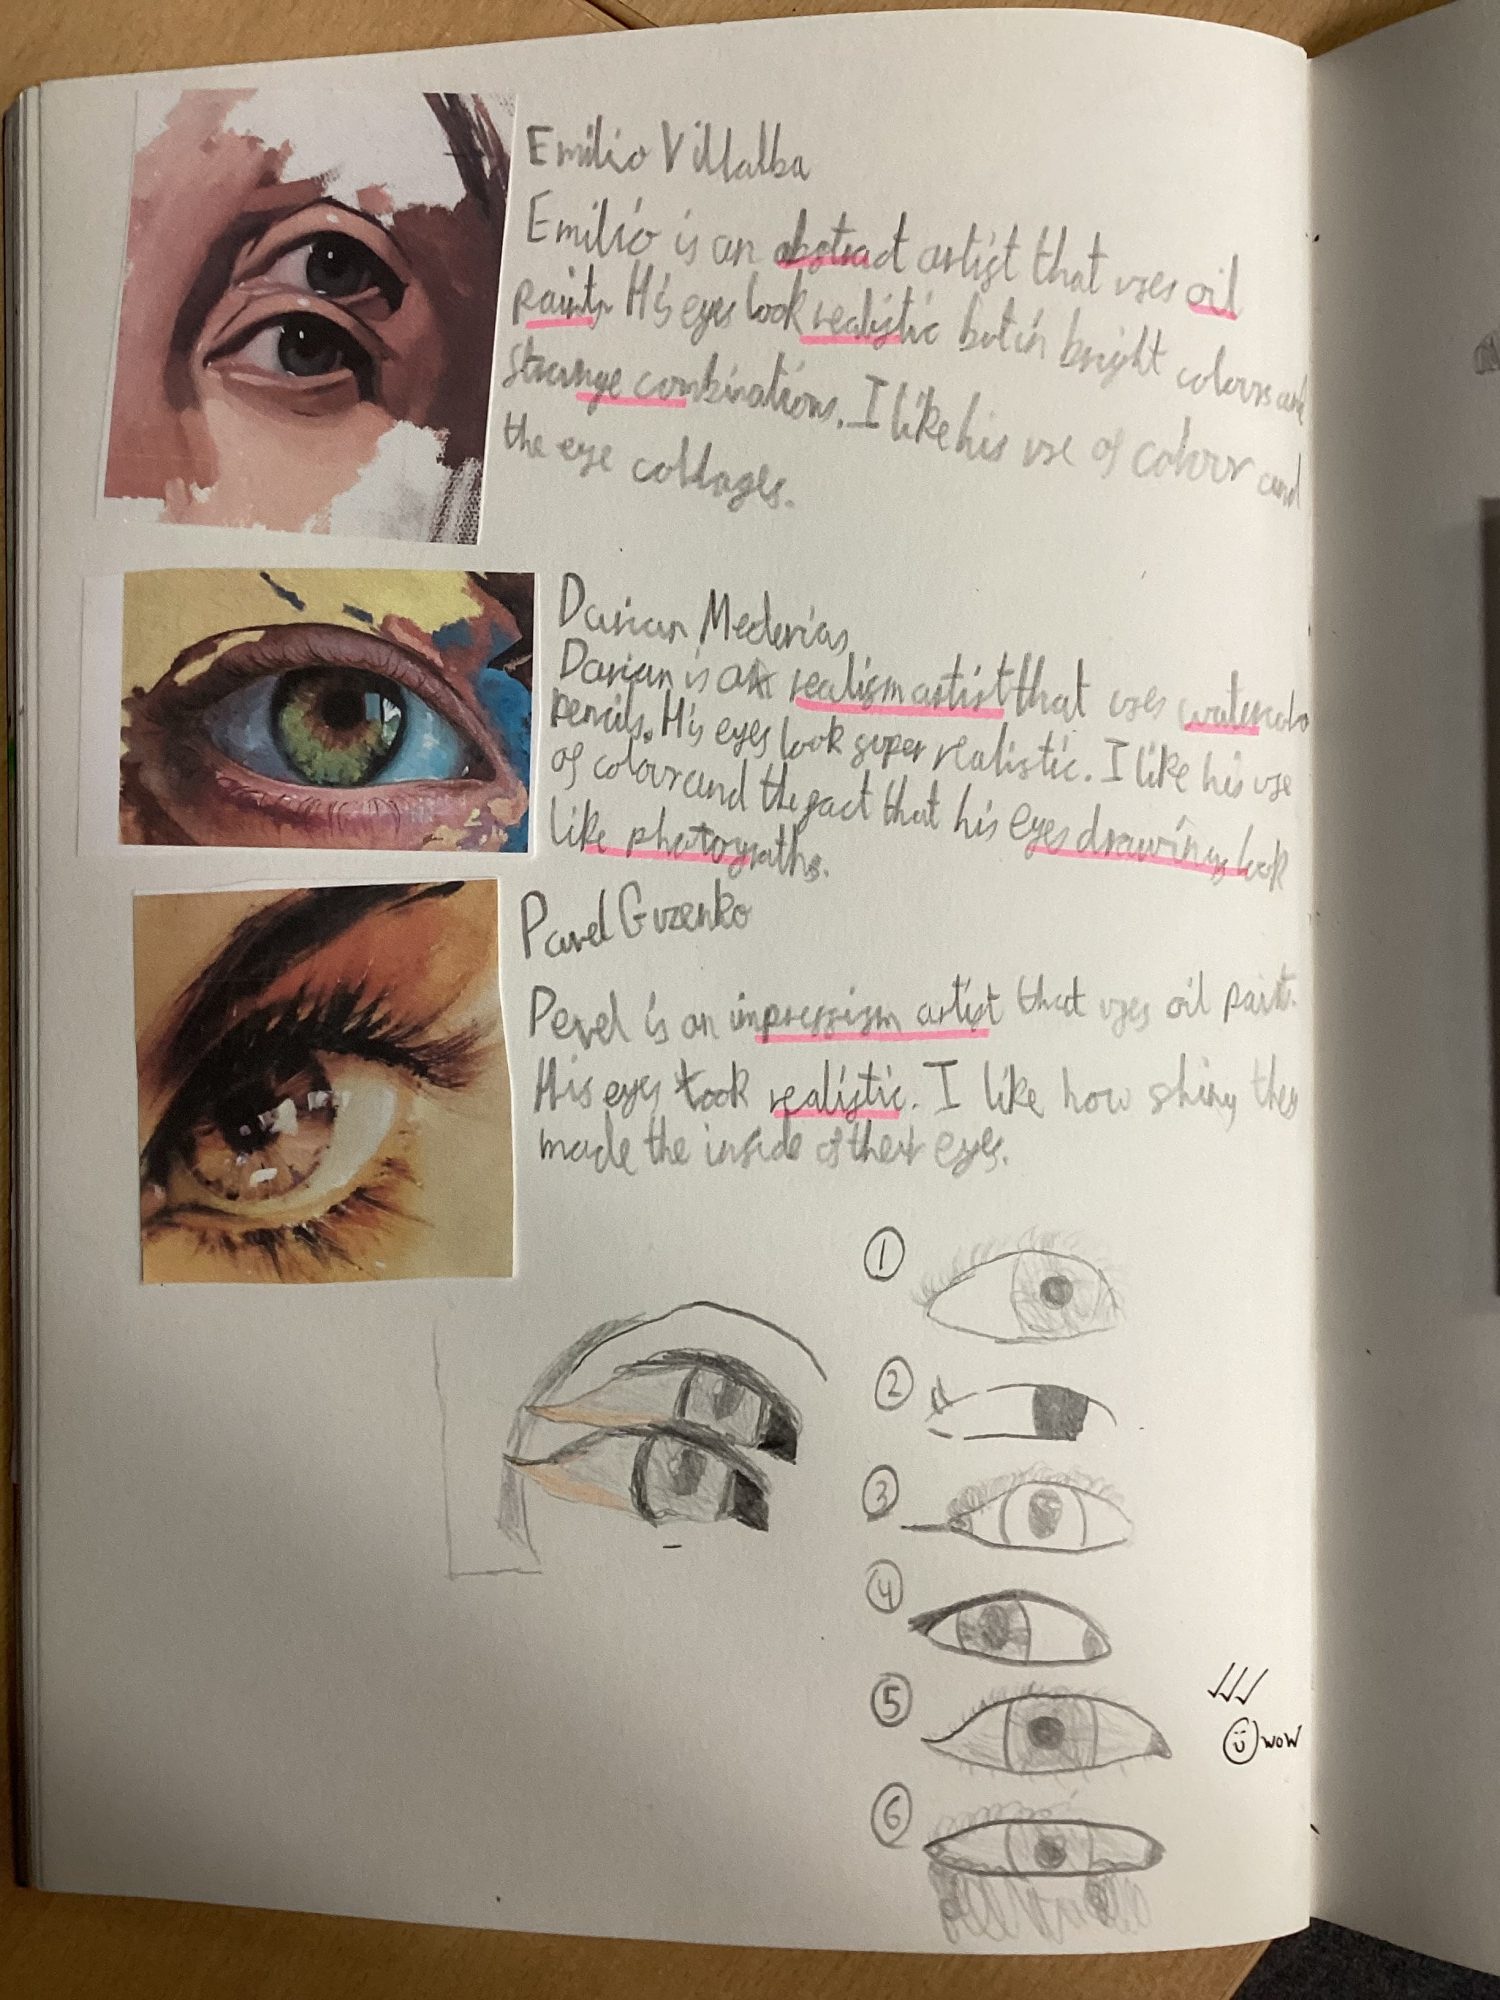 Emilio Villalba
Emilio is an abstract artist that uses oil
paints. His eyes look realistic but in bright colours and
strange combinations. I like his use of colour and
the eye collages.
Darian Mederias
Darian is a realism artist that uses watercolo
pencils. His eyes look super realistic. I like his use
of colour and the fact that his eyes drawings look
like photographs.
Pavel Guzenko
Pevel is an impressism artist that uses oil paint.
His eyes look realistic. I like how shiny they
made the inside of their eyes.
1
2
3
4
5
wow
6